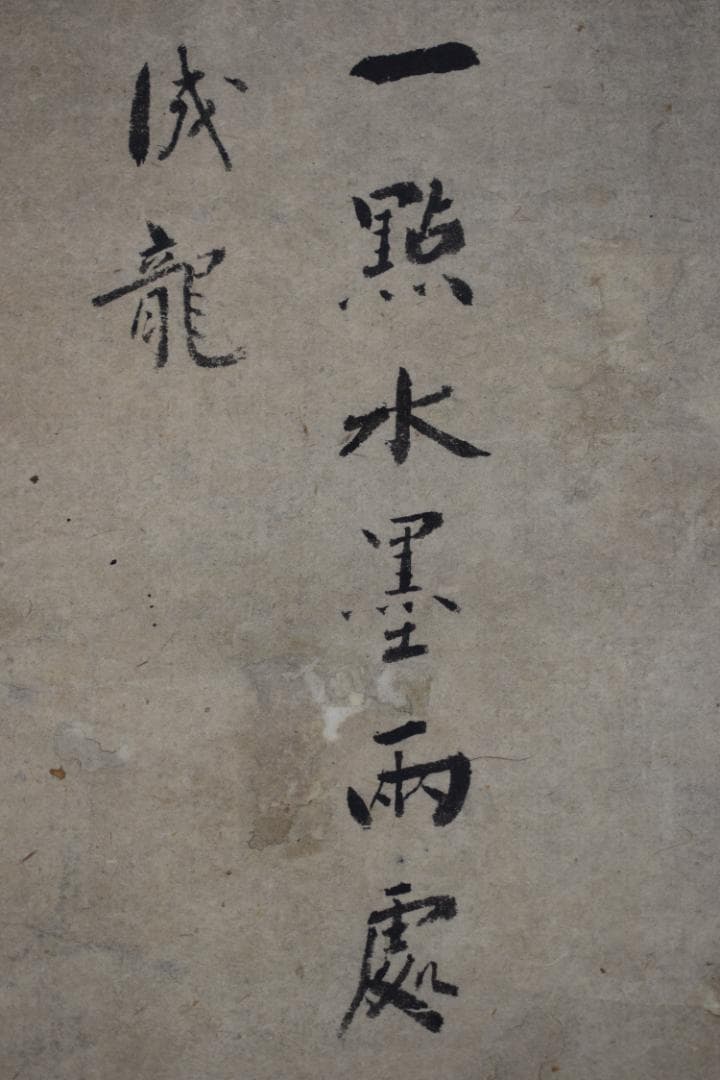 一點水墨兩處
成龍